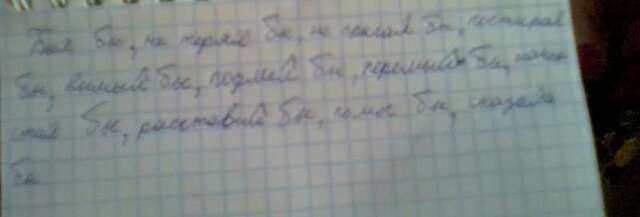 Был бы, не терял бы, не поехал бы, постирал
бы, вымыл бы, подмёл бы, перемыл бы, 
бы, расставил бы, помог бы, сказала
бы